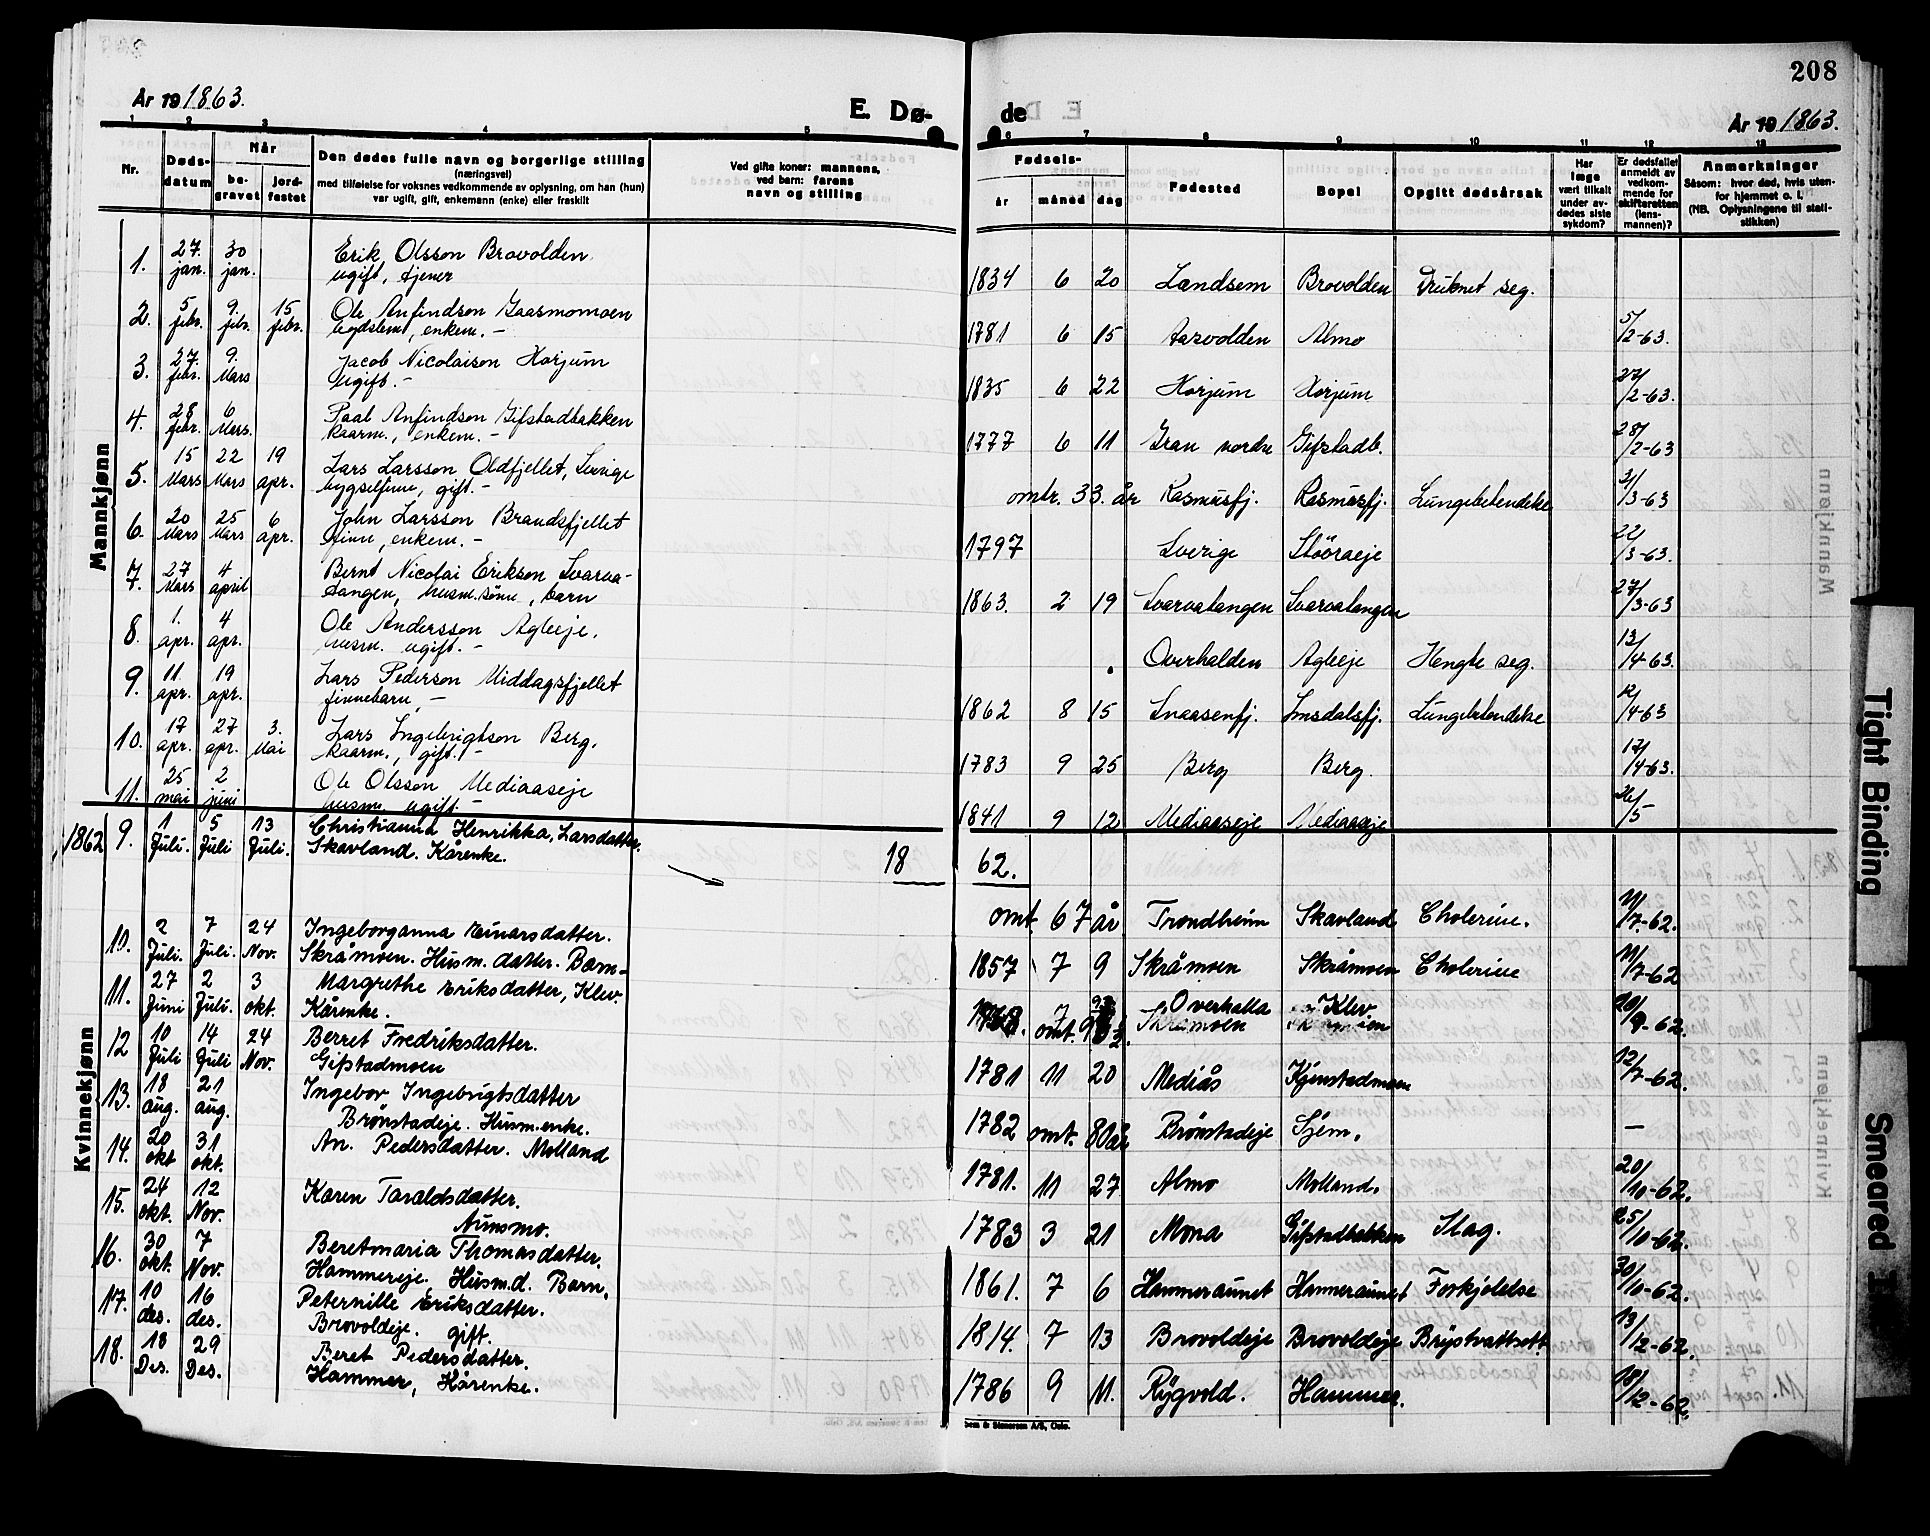 208
År 19 1863.
E. Dø-
de
År 19 1863.
1 2 3 4 5 6 7 8 9 10 11 12 13
Nr.
Døds-
datum
Når
be-
gravet
jord-
festet
Den dødes fulle navn og borgerlige stilling
(næringsvei)
med tilføielse for voksnes vedkommende av oplysning, om han (hun)
var ugift, gift, enkemann (enke) eller fraskilt
Ved gifte koner: mannens,
ved barn: farens
navn og stilling
Fødsels-
år måned dag
Fødested
Bopel
Opgitt dødsårsak
Har
læge
vært tilkalt
under av-
dødes siste
sykdom?
Er dødsfallet
anmeldt av
vedkom-
mende for
skifteretten
(lens-
mannen)?
Anmerkninger
Såsom: hvor død, hvis uten-
for hjemmet o. l.
(NB. Oplysningene til stati-
stikken)
Mannkjønn
1. 27. jan. 30 jan. Erik Olsson Brovolden
ugift, tjener
1834 6 20 Landsem Brovolden Druknet seg.
2. 5 febr. 9. febr. 15 febr. Ole Anfindson Gaasmomoen
bygdslemt, enkem. -
1781 6 15 Aarvolden Almo 5/2-63.
3. 27. febr. 9. Mars Jacob Nicolaison Horjum
ugift. -
1835 6 22 Horjum Horjum 27/2-63.
4. 28 febr. 6 Mars. Paal Anfindson Gifstadbakken
kaarm., enkem. -
1777 6 11 Gran nordre Gifstadb. 28/2-63
5. 15 Mars 22 Mars 19 apr. Lars Larsson Oldfjellet, Sverige
bygselfinne, gift. -
omtr. 33. år Rasmusfj. Rasmusfj. Lungebetendelse /3-63
6. 20 Mars 25 Mars 6 apr. John Larsson Brandsfjellet
finne, enkem. -
1797 Sverige Stööraeje 22/3-63.
7. 27 Mars 4 april Bernt Nicolai Erikson Svarva-
tangen, husm. sönn, barn
1863. 2 19 Svarvatangen Svarvatangen 27/3-63
8. 1. apr. 4 apr. Ole Andersson Agleeje,
husm. ugift. -
Overhalden Agleeje Hengte seg. 13/4-63.
9. 11. apr. 19 apr. Lars Pederson Middagsfjellet
finnebarn, -
1862 8 15 Snaasenfj. Imsdalsfj. Lungebetendelse 12/4-63
10. 17 apr. 27 apr. 3. Mai Lars Ingebrigtson Berg,
kaarm., gift. -
1783 9 25 Berg Berg. 17/4-63.
11. 25 mai 2 juni Ole Olsson Mediaaseje
husm. ugift. -
1841 9 12 Mediaaseje Mediaaseje 26/5
Kvinnekjønn
1862 9. 1 Juli. 5 Juli 13 Juli. Christianna Henrikka, Larsdatter.
Skavland. Kårenke.
18 62.
omt. 67 år Trondheim Skavland Cholerine. 11/7-62.
10. 2 Juli. 7 Juli. 24 Nov. Ingeborganna Einarsdatter.
Skråmoen. Husm. datter. Barn-
1857 7 9 Skråmoen Skråmoen Cholerine 11/7-62
11. 27 Juni 2 Juli. 3 okt. Margrethe Eriksdatter, Klev.
Kårenke.
Overhalla Klev 20/9-62.
12 10 Juli 14 Juli 24 Nov. Berret Fredriksdatter.
Gifstadmoen
1781 11 20 Mediås Kjenstadmoen 12/7-62.
13. 18 aug. 21 aug. Ingebor Ingebrigtsdatter
Brønstadeje. Husm.enke.
1782 omt. 80 år Brønstadeje Sjem. —
14. 20 okt 31 okt. An. Pedersdatter. Molland
1781. 11 27 Almo Molland. 20/10-62.
15. 24 okt. 12 Nov. Karen Taraldsdatter.
Aunsmo.
1783 3 21 Mona Gifstadbakken Slag. 25/10-62.
16. 30 okt. 7 Nov. Beretmaria Thomasdatter.
Hammereje. Husm.d. Barn.
1861. 7 6 Hammeraunet Hammeraunet Forkjølelse 30/10-62.
17. 10 des. 16 des. Peternille Eriksdatter.
Brovoldeje. gift.
1814. 7 13 Brovoldeje Brovoldeje Brystvattsott 13/12-62.
18. 18 Des. 29 Des. Beret Pedersdatter.
Hammer, Kårenke.
1786 9 11. Rygvold. Hammer. 18/12-62.
Tight Binding
Smeared